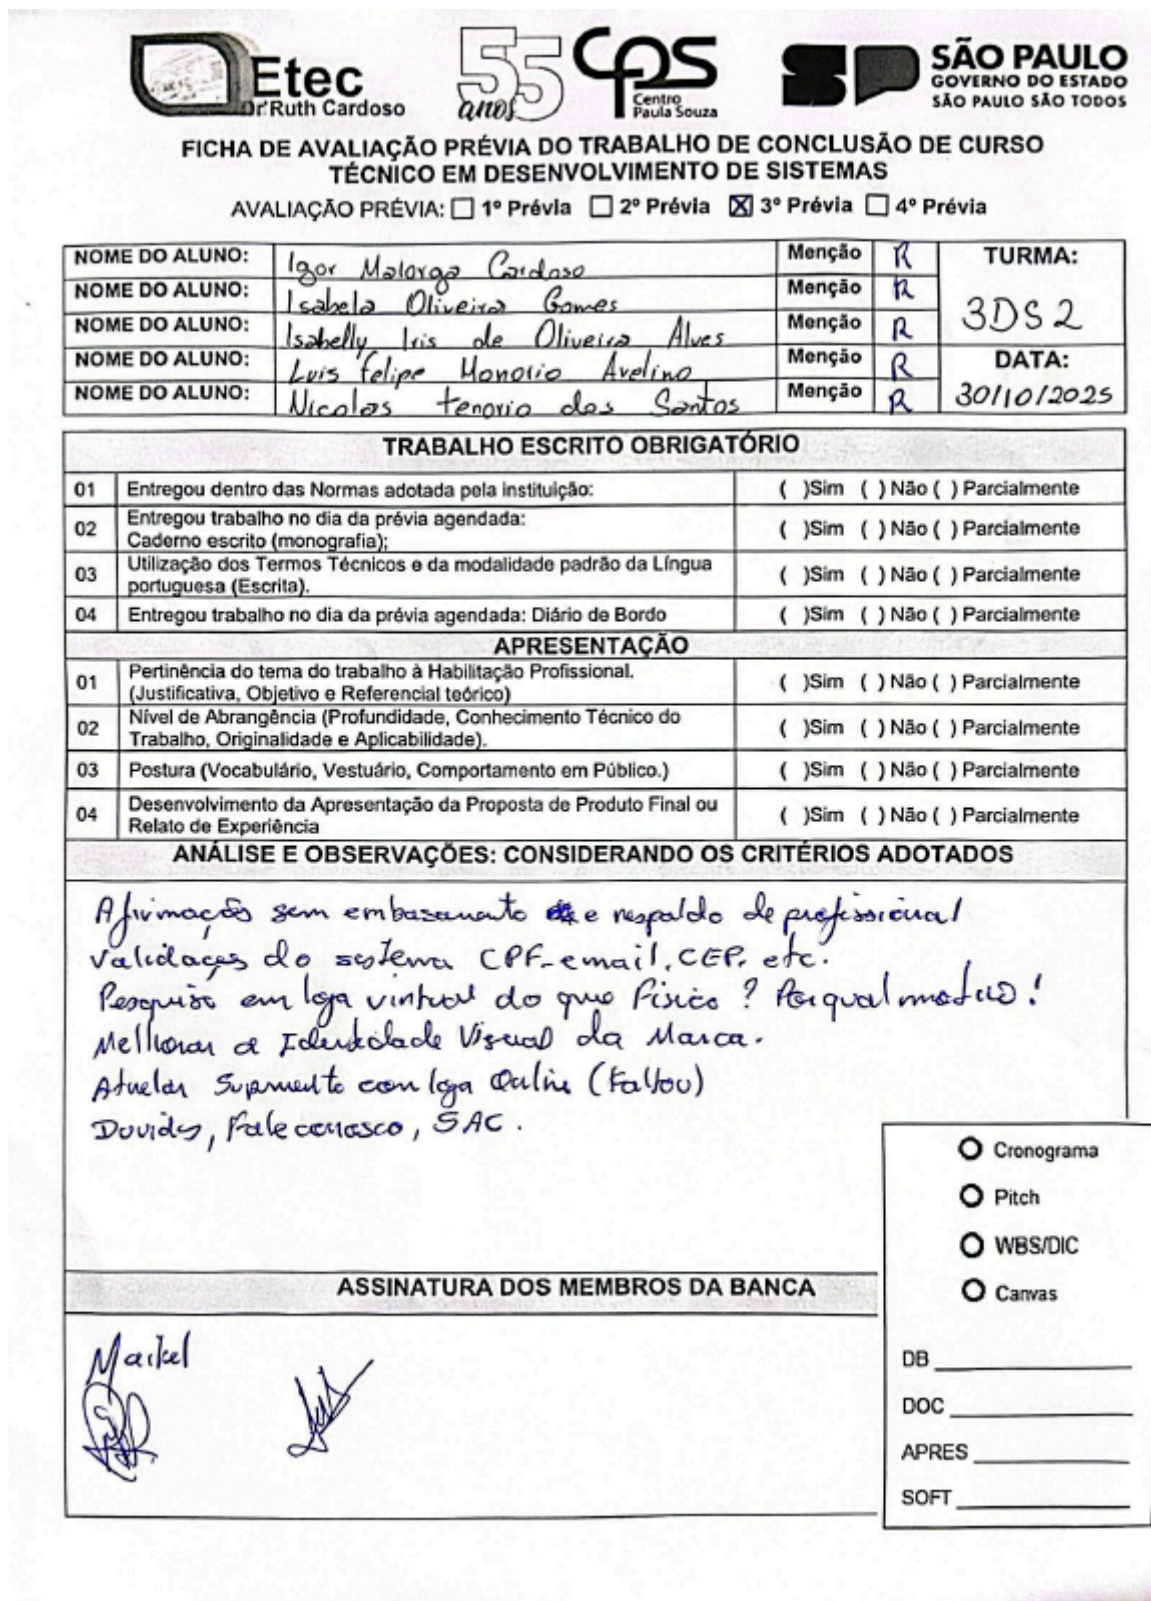 Etec
Drª Ruth Cardoso
55 anos
CPS
Centro
Paula Souza
SP
SÃO PAULO
GOVERNO DO ESTADO
SÃO PAULO SÃO TODOS
FICHA DE AVALIAÇÃO PRÉVIA DO TRABALHO DE CONCLUSÃO DE CURSO
TÉCNICO EM DESENVOLVIMENTO DE SISTEMAS
AVALIAÇÃO PRÉVIA: ☐ 1º Prévia ☐ 2º Prévia ☒ 3º Prévia ☐ 4º Prévia
NOME DO ALUNO: Igor Malorga Cardoso Menção R
NOME DO ALUNO: Isabela Oliveira Gomes Menção R
NOME DO ALUNO: Isabelly Iris de Oliveira Alves Menção R
NOME DO ALUNO: Luis felipe Honorio Avelino Menção R
NOME DO ALUNO: Nicolas tenorio dos Santos Menção R
TURMA:
3DS2
DATA:
30/10/2025
TRABALHO ESCRITO OBRIGATÓRIO
01 Entregou dentro das Normas adotada pela instituição: ( )Sim ( ) Não ( ) Parcialmente
02 Entregou trabalho no dia da prévia agendada:
Caderno escrito (monografia); ( )Sim ( ) Não ( ) Parcialmente
03 Utilização dos Termos Técnicos e da modalidade padrão da Língua
portuguesa (Escrita). ( )Sim ( ) Não ( ) Parcialmente
04 Entregou trabalho no dia da prévia agendada: Diário de Bordo ( )Sim ( ) Não ( ) Parcialmente
APRESENTAÇÃO
01 Pertinência do tema do trabalho à Habilitação Profissional.
(Justificativa, Objetivo e Referencial teórico) ( )Sim ( ) Não ( ) Parcialmente
02 Nível de Abrangência (Profundidade, Conhecimento Técnico do
Trabalho, Originalidade e Aplicabilidade). ( )Sim ( ) Não ( ) Parcialmente
03 Postura (Vocabulário, Vestuário, Comportamento em Público.) ( )Sim ( ) Não ( ) Parcialmente
04 Desenvolvimento da Apresentação da Proposta de Produto Final ou
Relato de Experiência ( )Sim ( ) Não ( ) Parcialmente
ANÁLISE E OBSERVAÇÕES: CONSIDERANDO OS CRITÉRIOS ADOTADOS
Afirmações sem embasamento e respaldo de profissional
Validações do sistema CPF-email, CEP, etc.
Pesquisa em loja virtual do que Físico? Por qual motivo!
Melhorar a Identidade Visual da Marca.
com loja Online (Faltou)
Duvidas, Fale conosco, SAC.
Cronograma
Pitch
WBS/DIC
Canvas
DB
DOC
APRES
SOFT
ASSINATURA DOS MEMBROS DA BANCA
Maikel